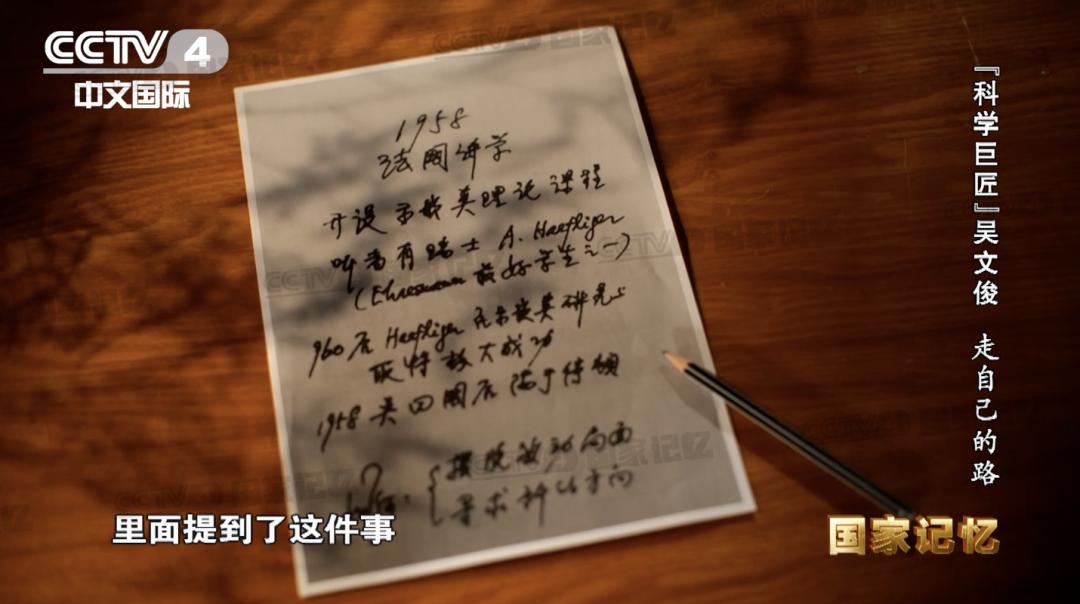 CCTV 4
中文国际
1958
法国讲学
开设示嵌类理论课程
听者有瑞士 A. Haefliger
(Ehresmann 最好学生之一)
960后 Haefliger 在示嵌类研究上
取得极大成功
1958 吴回国后陷于停顿
?
摆脱被动局面
寻求新的方向
里面提到了这件事
『科学巨匠』吴文俊 走自己的路
国家记忆